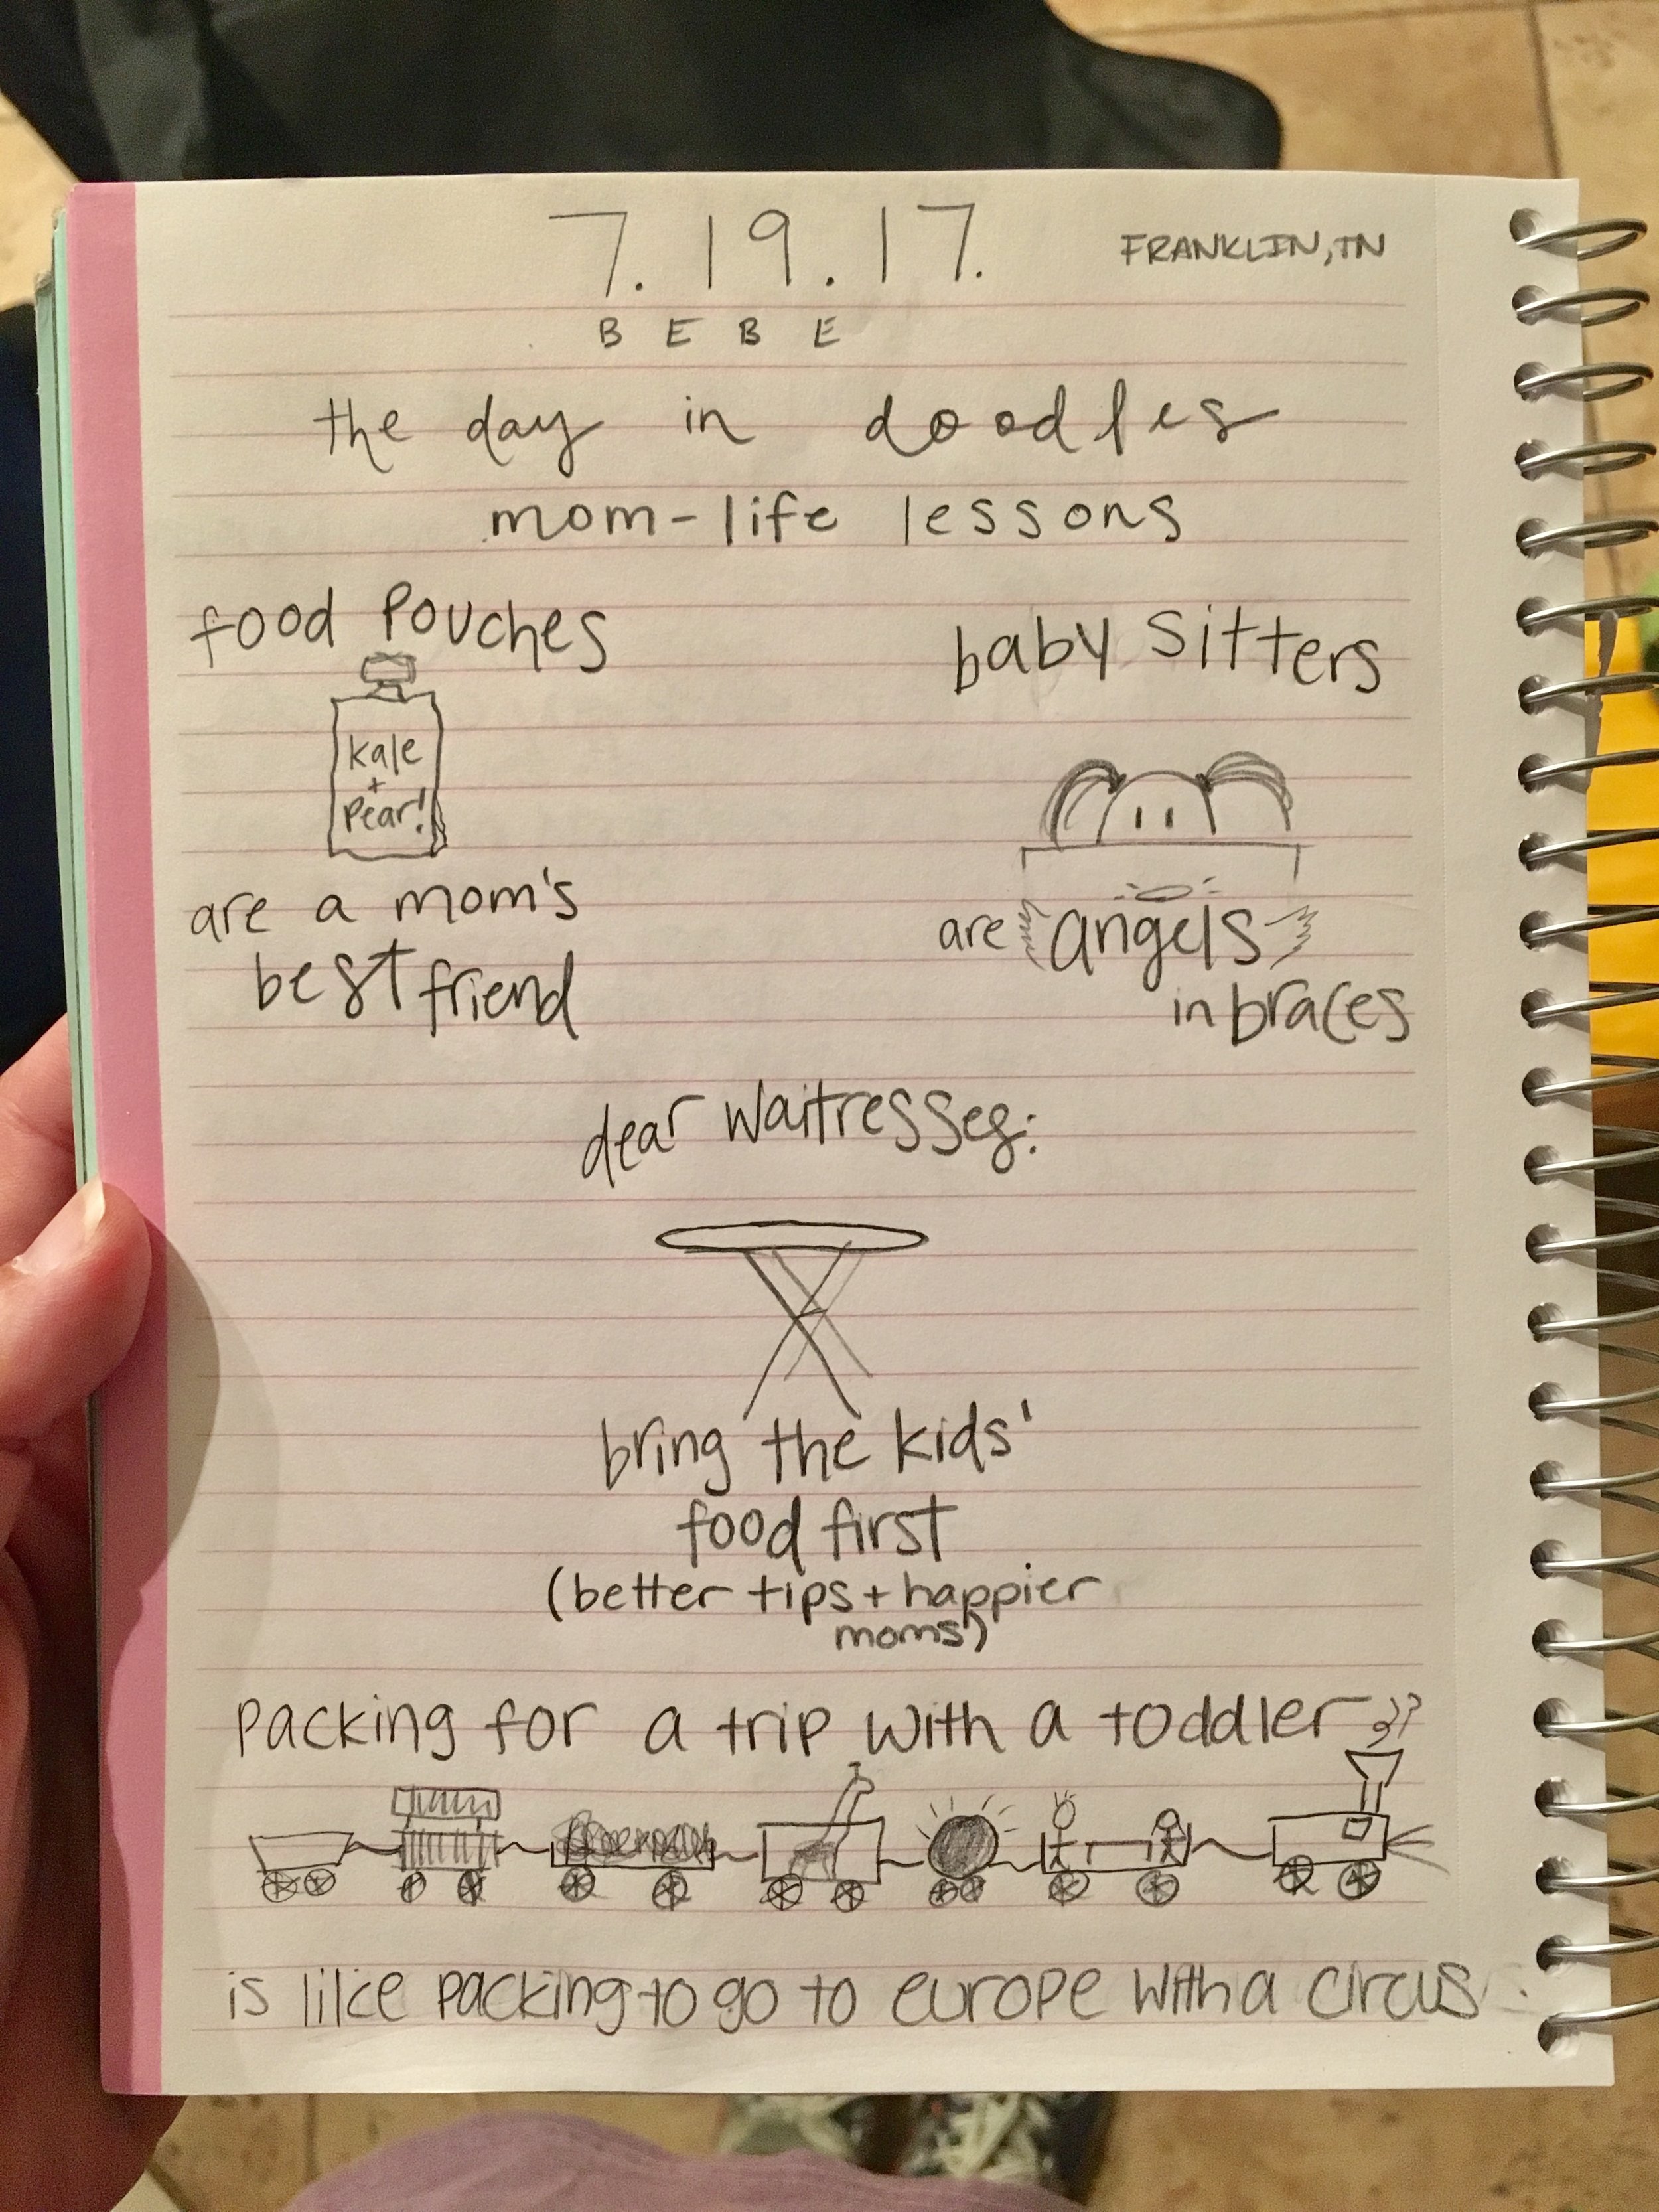 7.19.17.
FRANKLIN, TN
BEBE
the day in doodles
mom-life lessons
food Pouches
Kale
+
Pear!
are a mom's
best friend
baby sitters
are angels
in braces
dear waitresses:
bring the kids'
food first
(better tips + happier
moms)
Packing for a trip with a toddler
is like packing to go to europe with a circus